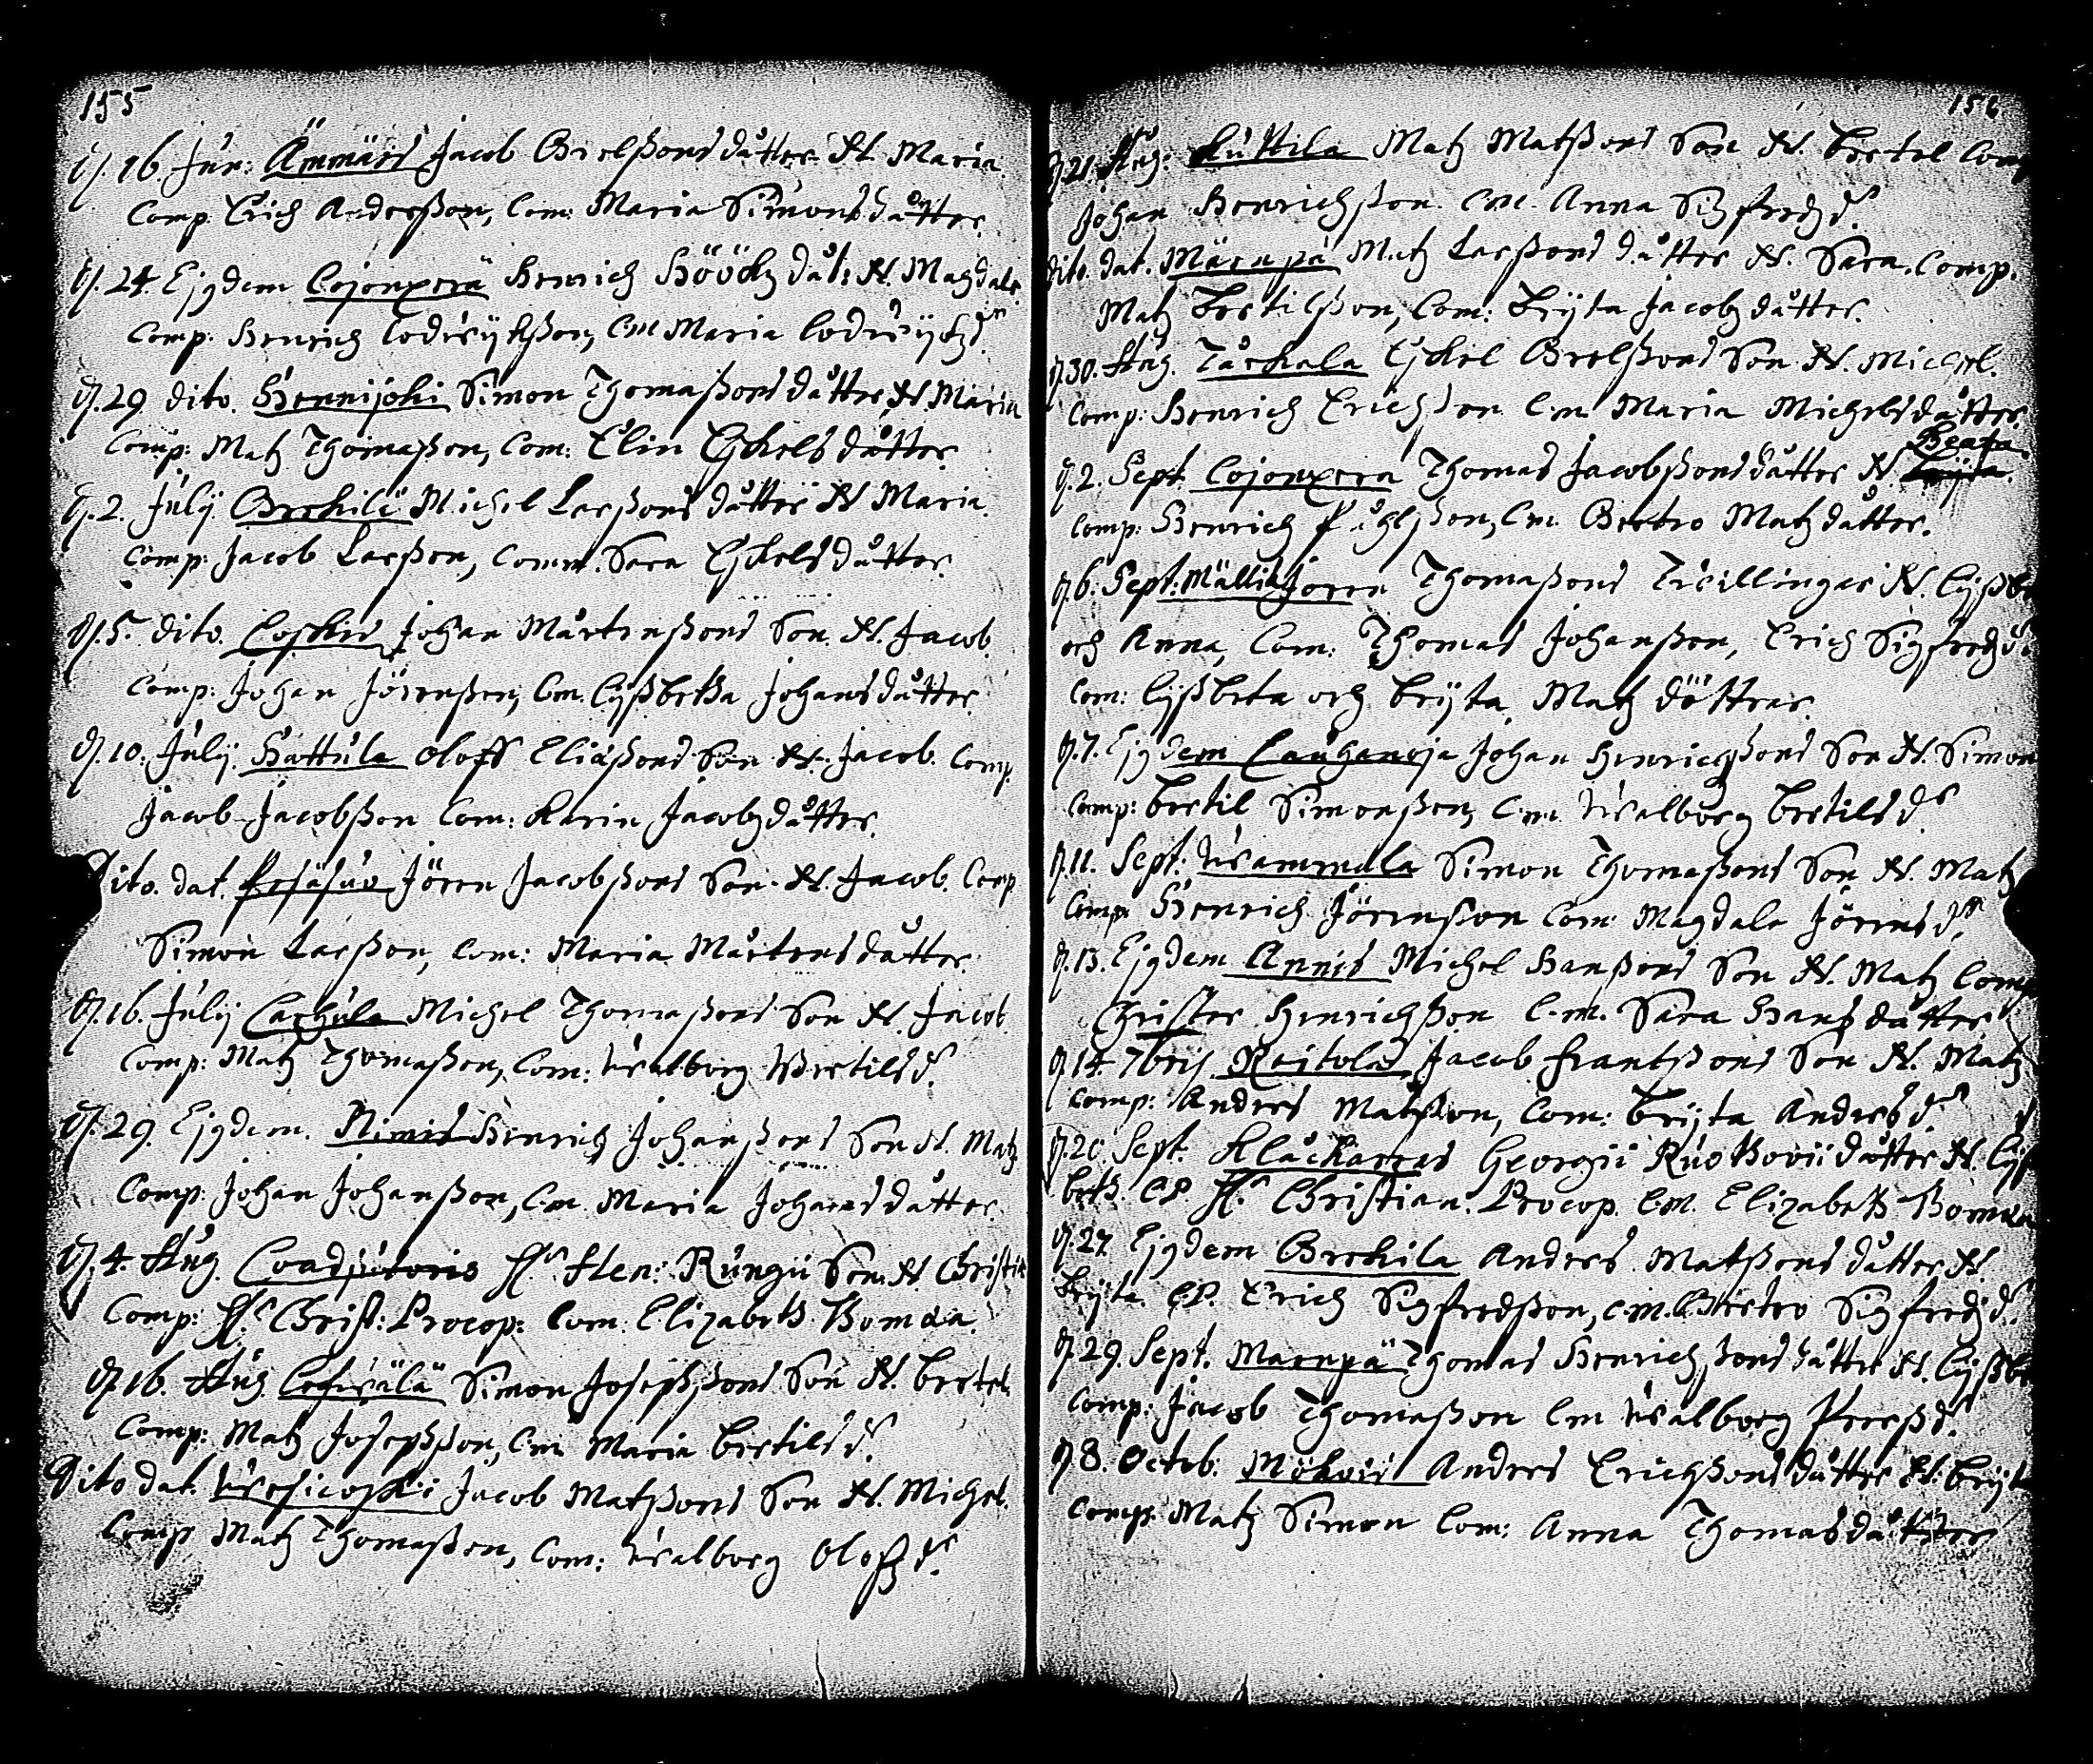 155
D. 16. Jun: Ämmäis Jacob Brelßons dåtter N. Maria
Comp. Erich Anderßon, Com: Maria Simons dåtter.
D. 24. Ejgdem Cojonperä Henrich Höökz dåt: N. Magdale.
Comp: Henrich Lodwijkßon, Cm Maria Lodwijkz dr.
D. 29. dito. Hennijoki Simon Thomaßons dåtter N. Maria
Comp: Matz Thomaßon, Com: Elin Eskels dåtter.
D. 2. Julij Brekilä Michel Larßons dåtter N Maria.
Comp: Jacob Larßon, Comm. Sara Eskels dåtter.
D. 5. dito. Coskis Johan Mårtenßons Son. N. Jacob.
Comp: Johan Jörenßon, Cm. Lijßbetha Johans dåtter.
D. 10. Julij. Hattula Oloff Eliäßons Son N. Jacob. Comp.
Jacob Jacobßon Com: Karin Jacobz dåtter.
Dito. dat. Jören Jacobßons Son. N. Jacob. Comp
Simon Larßon, Com: Maria Mårtens dåtter.
D. 16. Julij Carhula Michel Thomaßons Son N. Jacob.
Comp: Matz Thomaßon, Com: Walborg Bertils d.
D. 29. Ejgdem. Nimis Henrich Johanßons Son N. Matz
Comp: Johan Johanßon, Cm. Maria Johans dåtter.
D. 4. Aug. Coadjutoris Hr. Hen: Rungii Son. N Christia
Comp: Hr. Christ: Procop: Com. Elizabeth Bomda.
D. 16. Aug Simon Josephßons Son N. Bertel.
Comp: Matz Josephßon, Cm Maria Bertils d.
Dito dat. Wesicoski Jacob Matßons Son N. Michel.
Comp Matz Thomaßon, Com: Walborg Olofz d.
156
D. 21. Aug: Kuttila Matz Matßons Son N. Bertel Comp
Johan Henrichßon. Cm. Anna Sigfredz d.
Dito. dat. Märnpä Matz Larßons dåtter N. Sara. Comp.
Matz Bertilßon, Com: Brijta Jacobz dåtter.
D. 30. Aug. Tarkala Eskel Brelßons Son N. Michel.
Comp: Henrich Erichßon Cm Maria Michels dåtter.
Beata
D. 2. Sept. Cojonpera Thomas Jacobßons dåtter N. Brijta.
Comp: Henrich Påhlßon, Cm. Bertro Matz dåtter.
D. 6. Sept: Mällik Joren Thomaßons Twillingar N. Lijßbe
och Anna, Com: Thomas Johanßon, Erich Sigfredz
Com: Lijßbeta och Brijta, Matz döttrar.
D. 7. Ejgdem Lauhanoja Johan Henrichßons Son N. Simon
Comp: Bertil Simonßon, Cm. Walborg Bertils d.
D. 11. Sept: Wammula Simon Thomaßons Son N. Matz
Comp Henrich Jörenßon Com: Magdale Jörens d.
D. 13. Ejgdem Annis Michel Hanßons Son N. Matz Comp
Christer Henrichßon C.m. Sara Hans dåtter
D. 14. 7bris. Reitola Jacob frantßons Son N. Matz
Comp: Anders Matßon, Com: Brijta Anders d.
D. 20. Sept. Klåckarens Georgii Ruskovii dåtter N. Lijß
beth. CP Hr. Christian. Procop. Cm. Elizabeth Bomda
D. 27 Ejgdem Brekila Anders Matßons dåtter N.
Brijta. CP. Erich Sigfredßon, C.m. Bertro Sigfredz d.
D. 29. Sept. Marnpä Thomas Henrichßons dåtter N. Lijßbe
Comp: Jacob Thomaßon Cm Walborg Peerß d.
D. 8. Octob: Anders Erichßons dåtter N: Brijt
Comp. Matz Simon Com: Anna Thomas dåtter